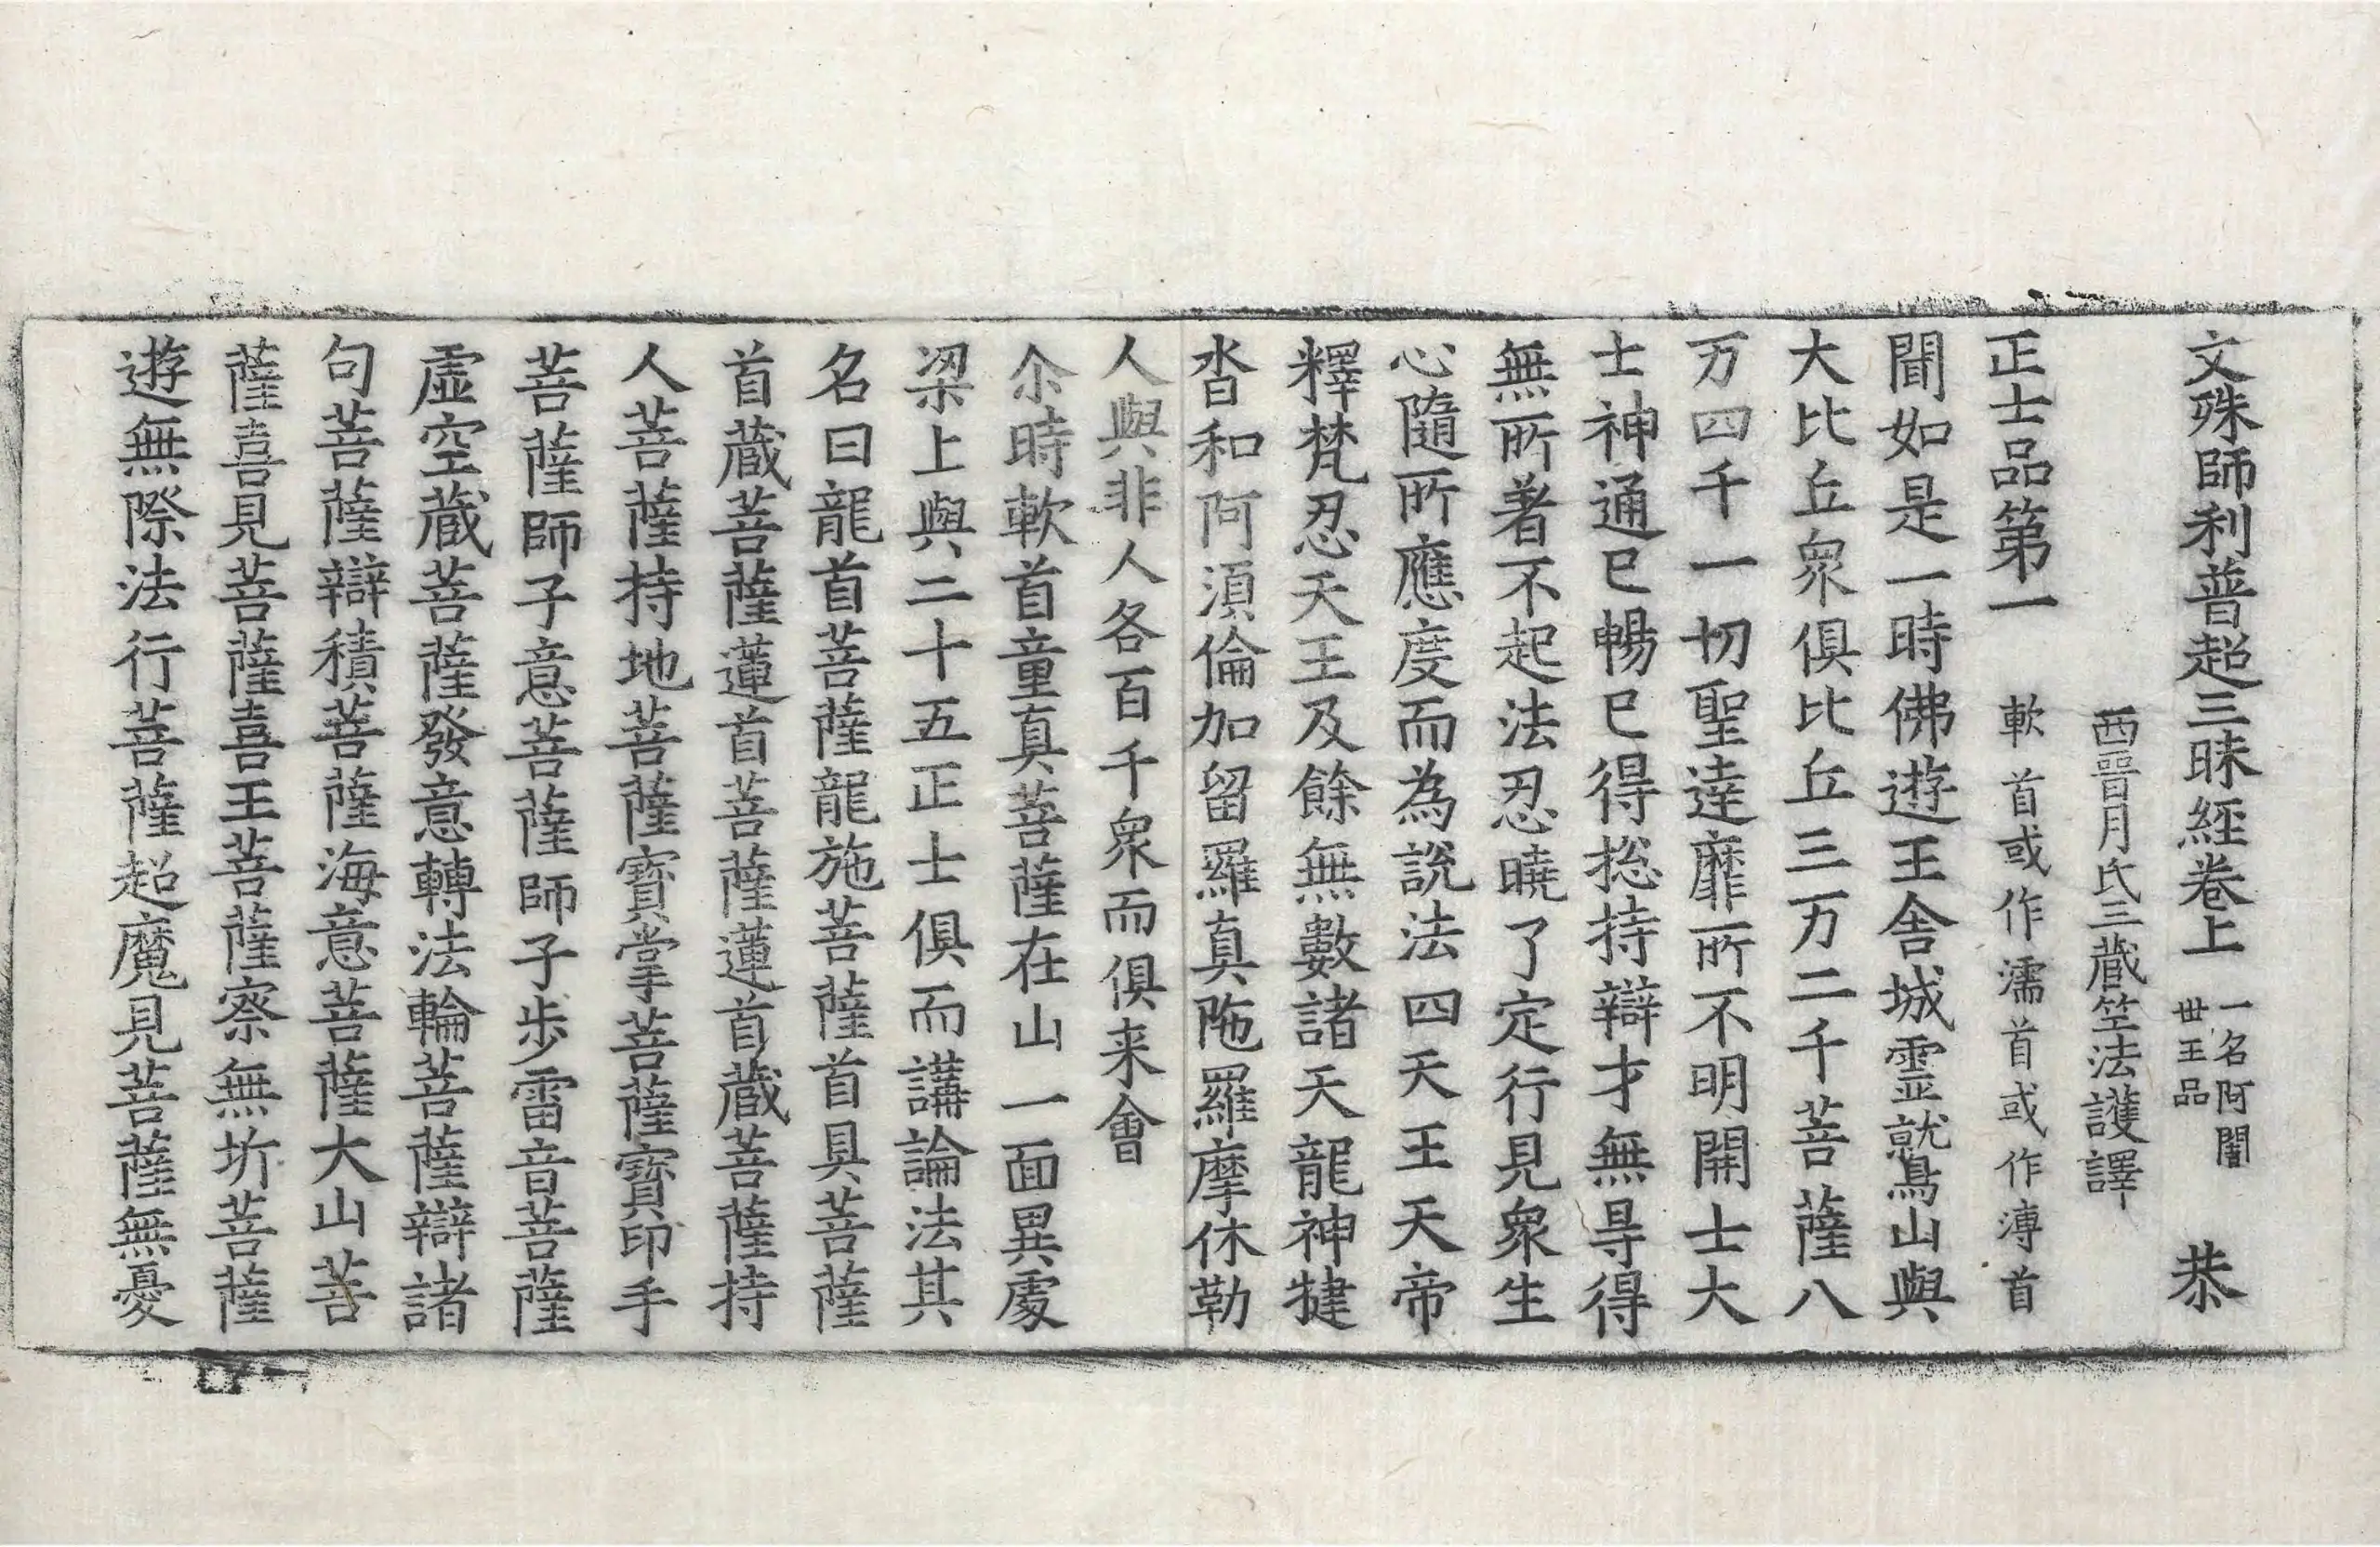 文殊師利普超三昧經卷上 一名阿闍世王品 恭
西晉月氏三藏竺法護譯
正士品第一 軟首或作濡首或作溥首
聞如是一時佛遊王舍城靈就鳥山與
大比丘衆俱比丘三万二千菩薩八
万四千一切聖達靡所不明開士大
士神通已暢已得捴持辯才無㝵得
無所著不起法忍曉了定行見衆生
心隨所應度而為說法四天王天帝
釋梵忍天王及餘無數諸天龍神揵
沓和阿須倫加留羅真陁羅摩休勒
人與非人各百千衆而俱来會
尒時軟首童真菩薩在山一面異處
梁上與二十五正士俱而講論法其
名曰龍首菩薩龍施菩薩首具菩薩
首藏菩薩蓮首菩薩蓮首藏菩薩持
人菩薩持地菩薩寶掌菩薩寶印手
菩薩師子意菩薩師子步雷音菩薩
虛空藏菩薩發意轉法輪菩薩辯諸
句菩薩辯積菩薩海意菩薩大山菩
薩喜見菩薩喜王菩薩察無圻菩薩
遊無際法行菩薩超魔見菩薩無憂